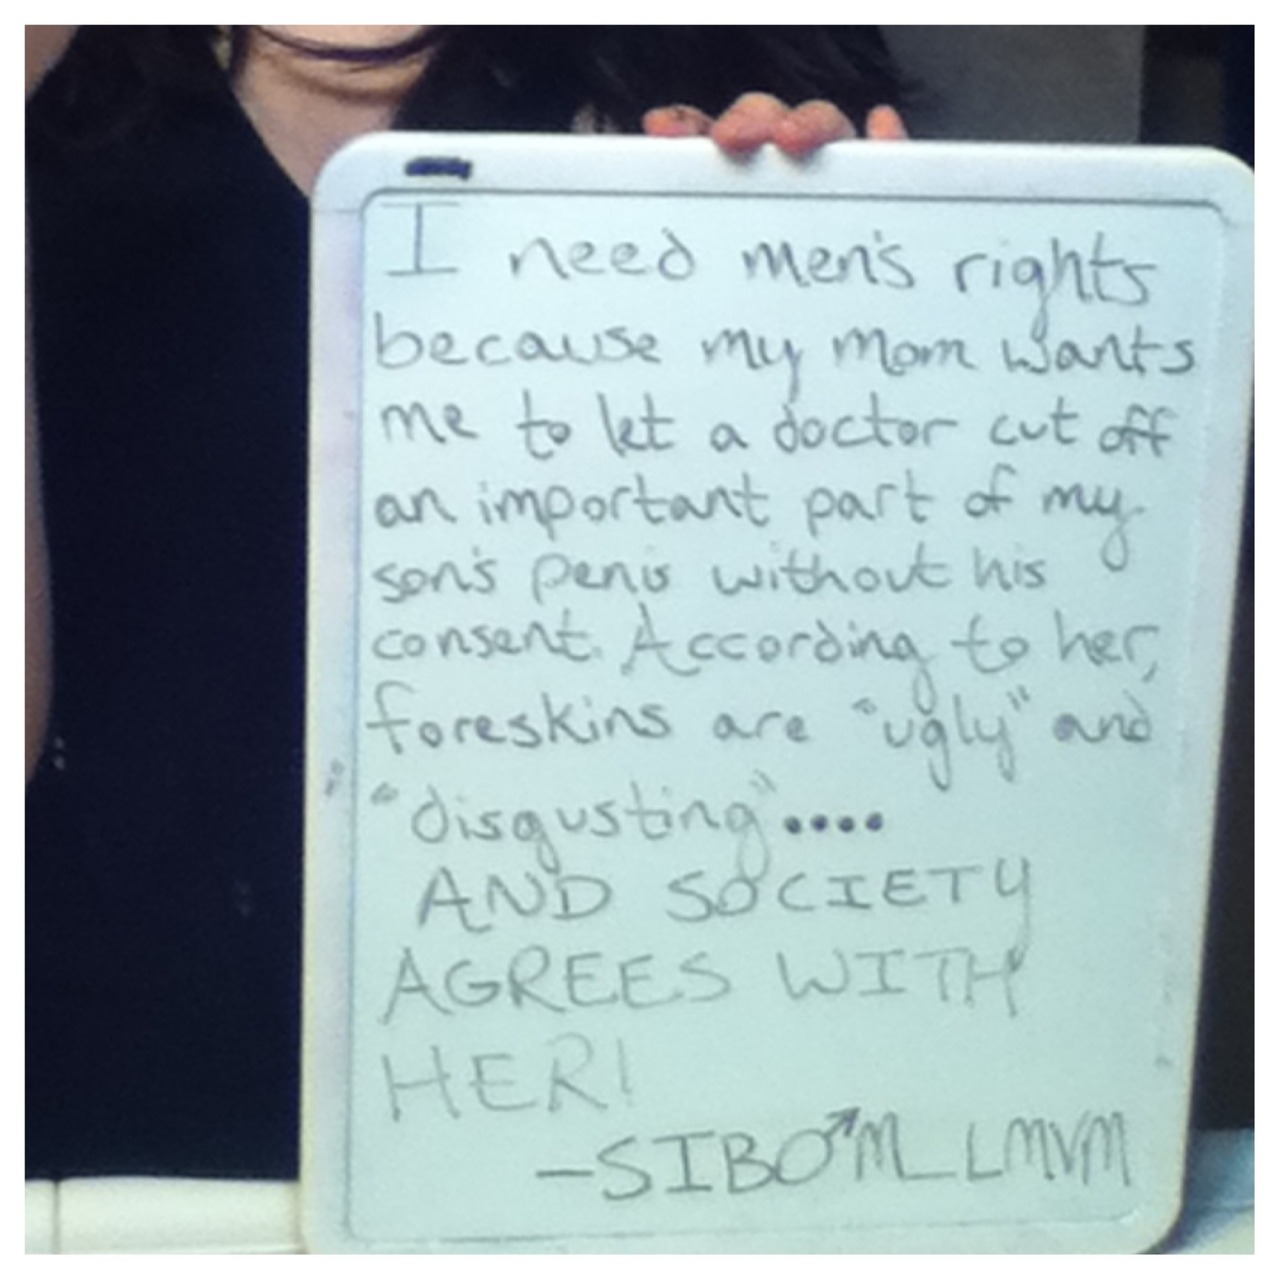 I need men's rights
because my mom wants
me to let a doctor cut off
an important part of my
son's penis without his
consent. According to her,
foreskins are "ugly" and
"disgusting"....
AND SOCIETY
AGREES WITH
HER!
–SIBO♂M_LMVM